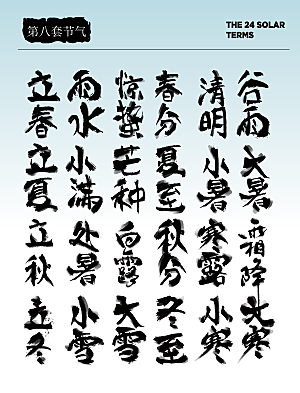 第八套节气
THE 24 SOLAR
TERMS
立春 雨水 惊蛰 春分 清明 谷雨
立夏 小满 芒种 夏至 小暑 大暑
立秋 处暑 白露 秋分 寒露 霜降
立冬 小雪 大雪 冬至 小寒 大寒